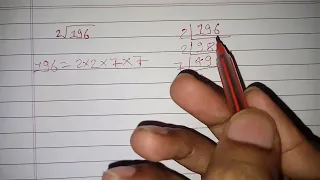 2√196
196 = 2×2×7×7
2 | 196
2 | 98
7 | 49